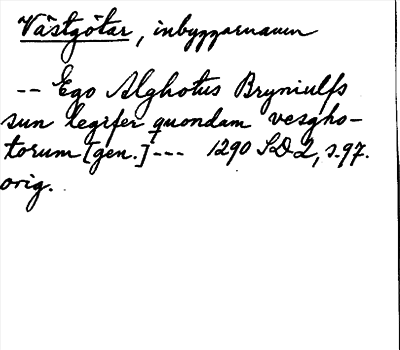 Västgötar, inbyggarnamn
-- Ego Alghotus Bryniulfs
sun legifer quondam vesgho-
torum [gen.] --- 1290 SD 2, s. 97.
orig.